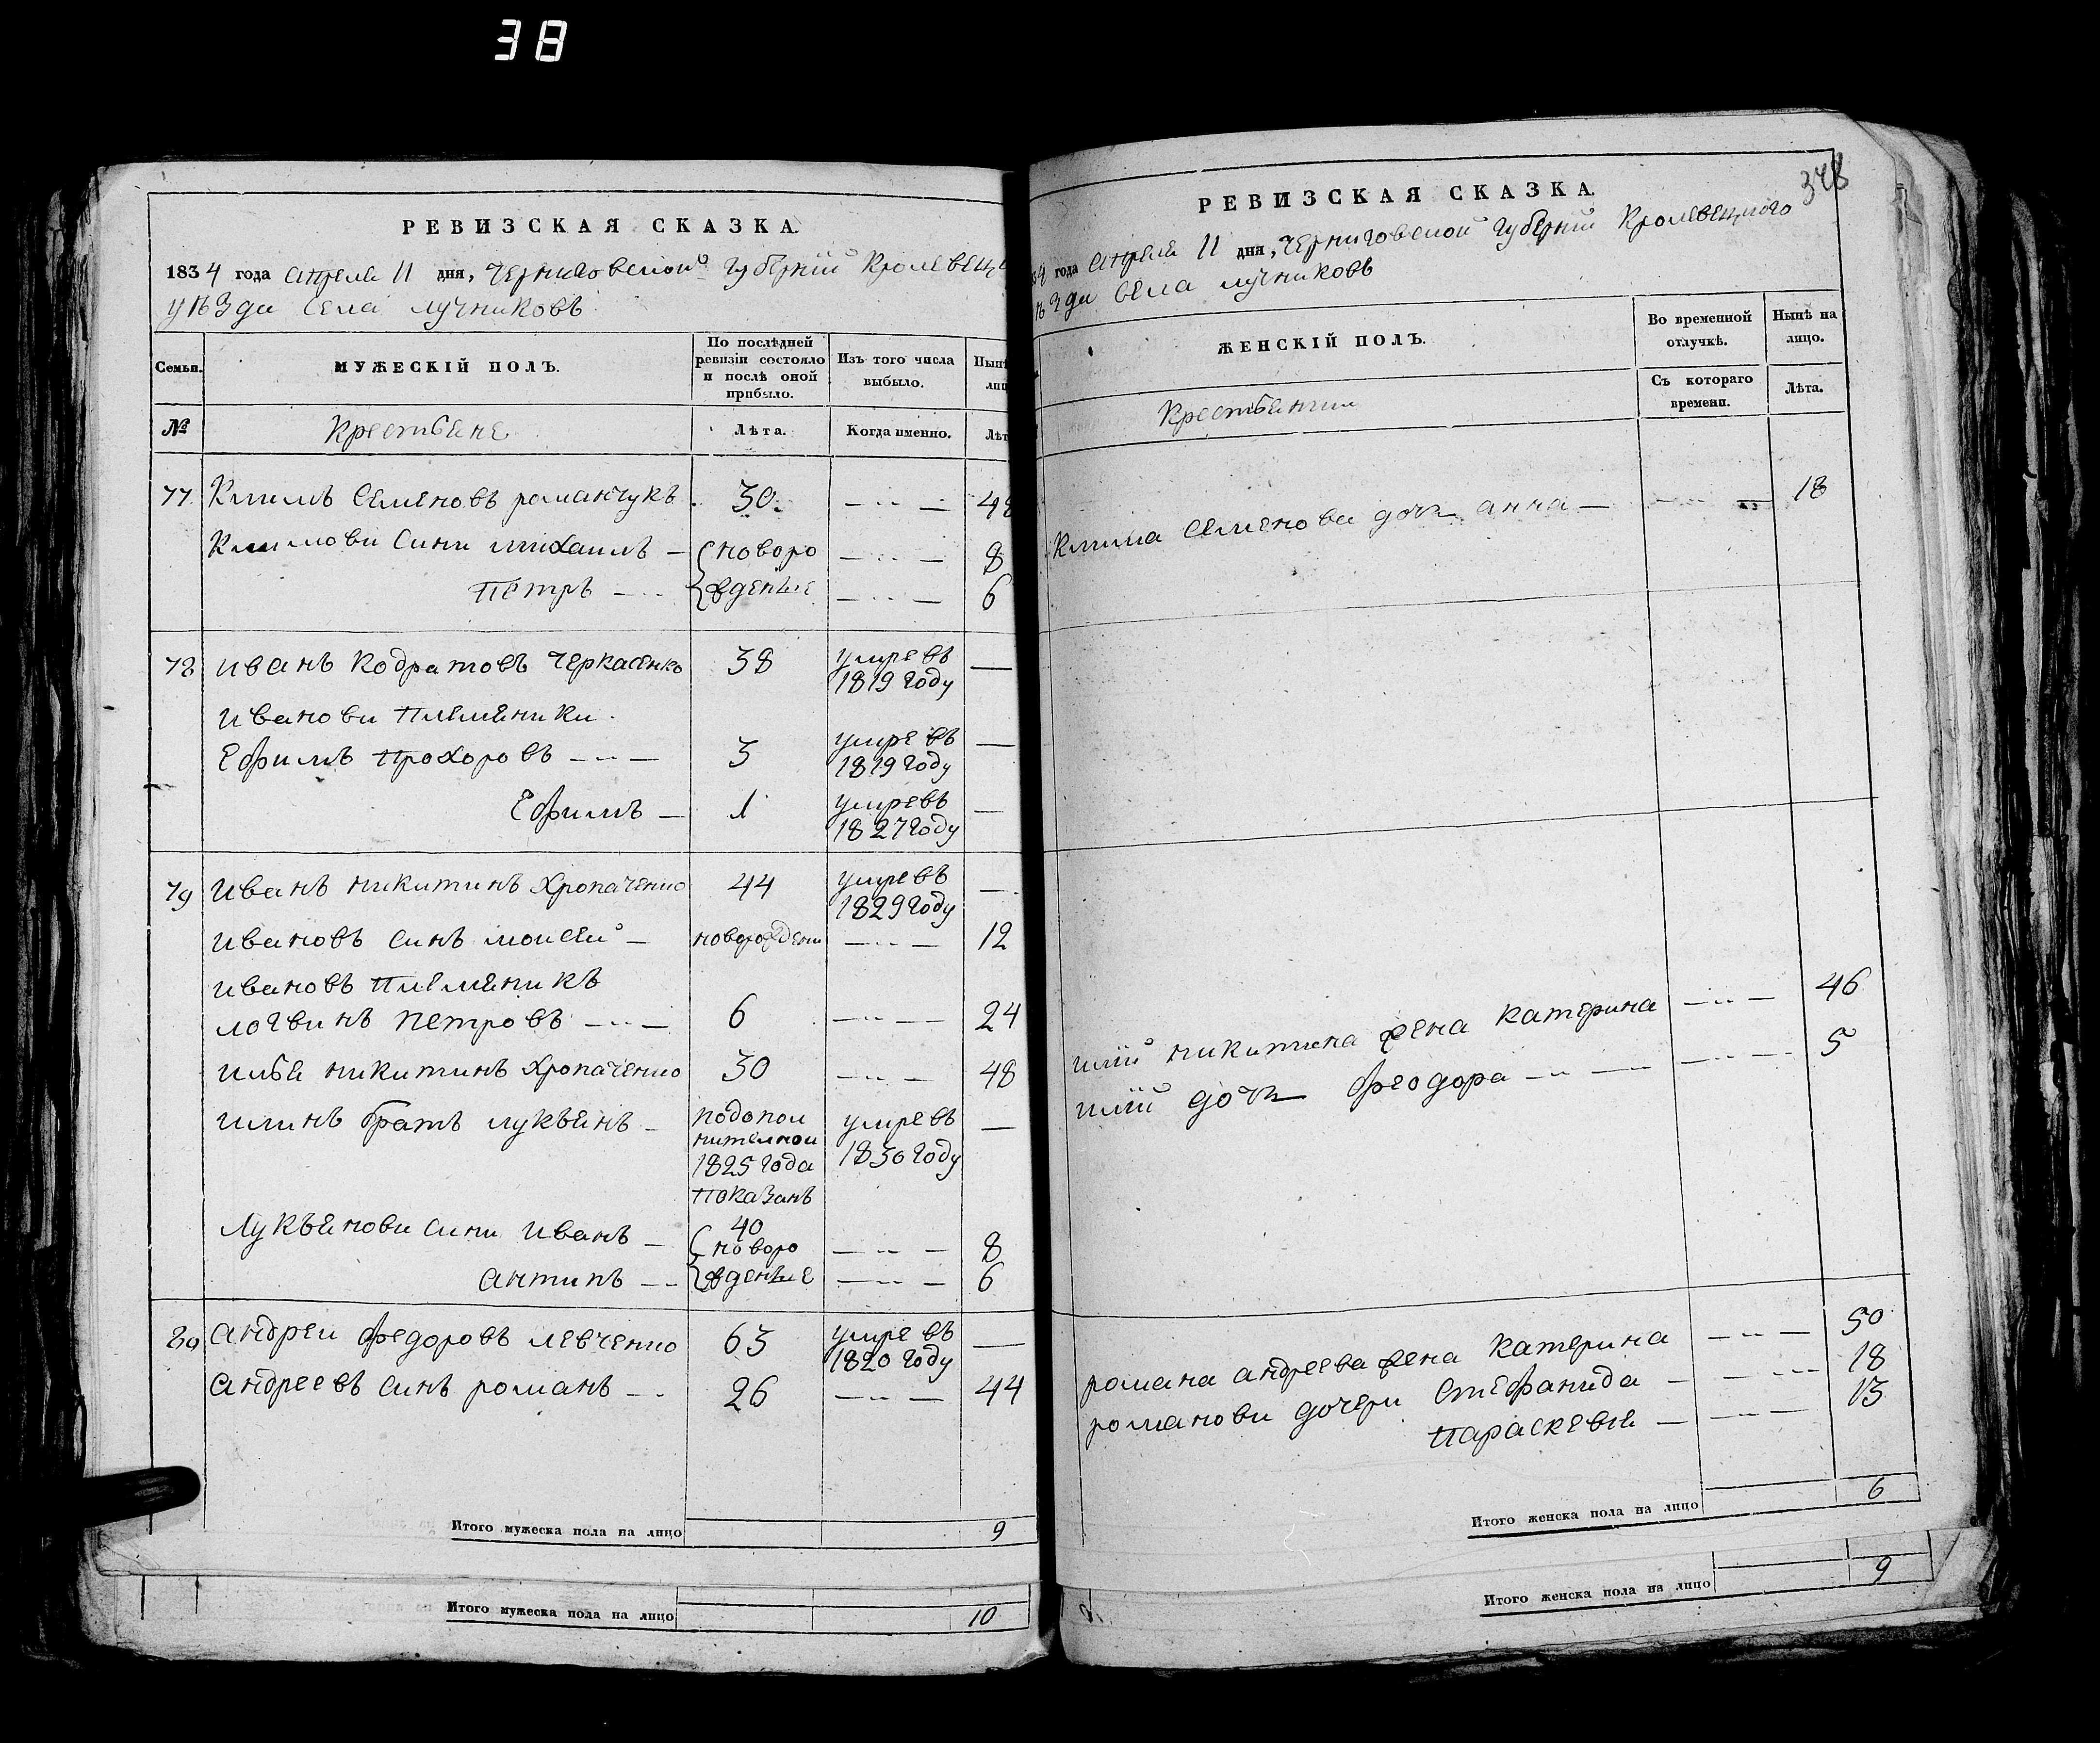 38
РЕВИЗСКАЯ СКАЗКА.
1834 года апреля 11 дня, Черниговской губернiи Кролевец
уѣзда села лучниковъ
Семьи. МУЖЕСКІЙ ПОЛЪ. По послѣдней ревизіи состояло и послѣ оной прибыло. Изъ того числа выбыло. Нынѣ лиц
№ Крестьяне Лѣта. Когда именно. Лѣт
77 Климъ Семеновъ романчукъ 30. — 48
Климови сини михаилъ — новоро — 8
Петръ — жденые — 6
78 иванъ Кодратовъ Черкасенко 38 умре въ 1819 году —
Иванови Племяники
Ефимъ Прохоровъ — 3 умре въ 1819 году —
Ефимъ — 1 умре въ 1827 году —
79 Иванъ никитинъ Хропаченко 44 умре въ 1829 году —
ивановъ синъ моисей — новорождени — 12
ивановъ Племяникъ
логвинъ петровъ — 6 — 24
илья никитинъ Хропаченко 30 — 48
илинъ братъ лукъянъ — подопол умре въ —
нителной 1830 году
1825 года
показанъ
40
Лукъянови сини Иванъ — новоро — 8
антипъ — жденые — 6
80 андреи федоровъ левченко 63 умре въ 1820 году —
андреевъ синъ романъ — 26 — 44
Итого мужеска пола на лицо 9
Итого мужеска пола на лицо 10
378
РЕВИЗСКАЯ СКАЗКА.
34 года апреля 11 дня, Черниговской губернiи Кролевецкого
ѣзда села лучниковъ
ЖЕНСКІЙ ПОЛЪ. Во временной отлучкѣ. Нынѣ на лицо.
Крестьянки Съ котораго времени. Лѣта.
Клима Семенова дочь анна — — 18
илiи никитина жена катерина — 46
илiи дочь феодора — — 5
романа андреева жена катерина — 50
романови дочери Стефанида — — 18
параскевiя — — 13
Итого женска пола на лицо 6
Итого женска пола на лицо 9